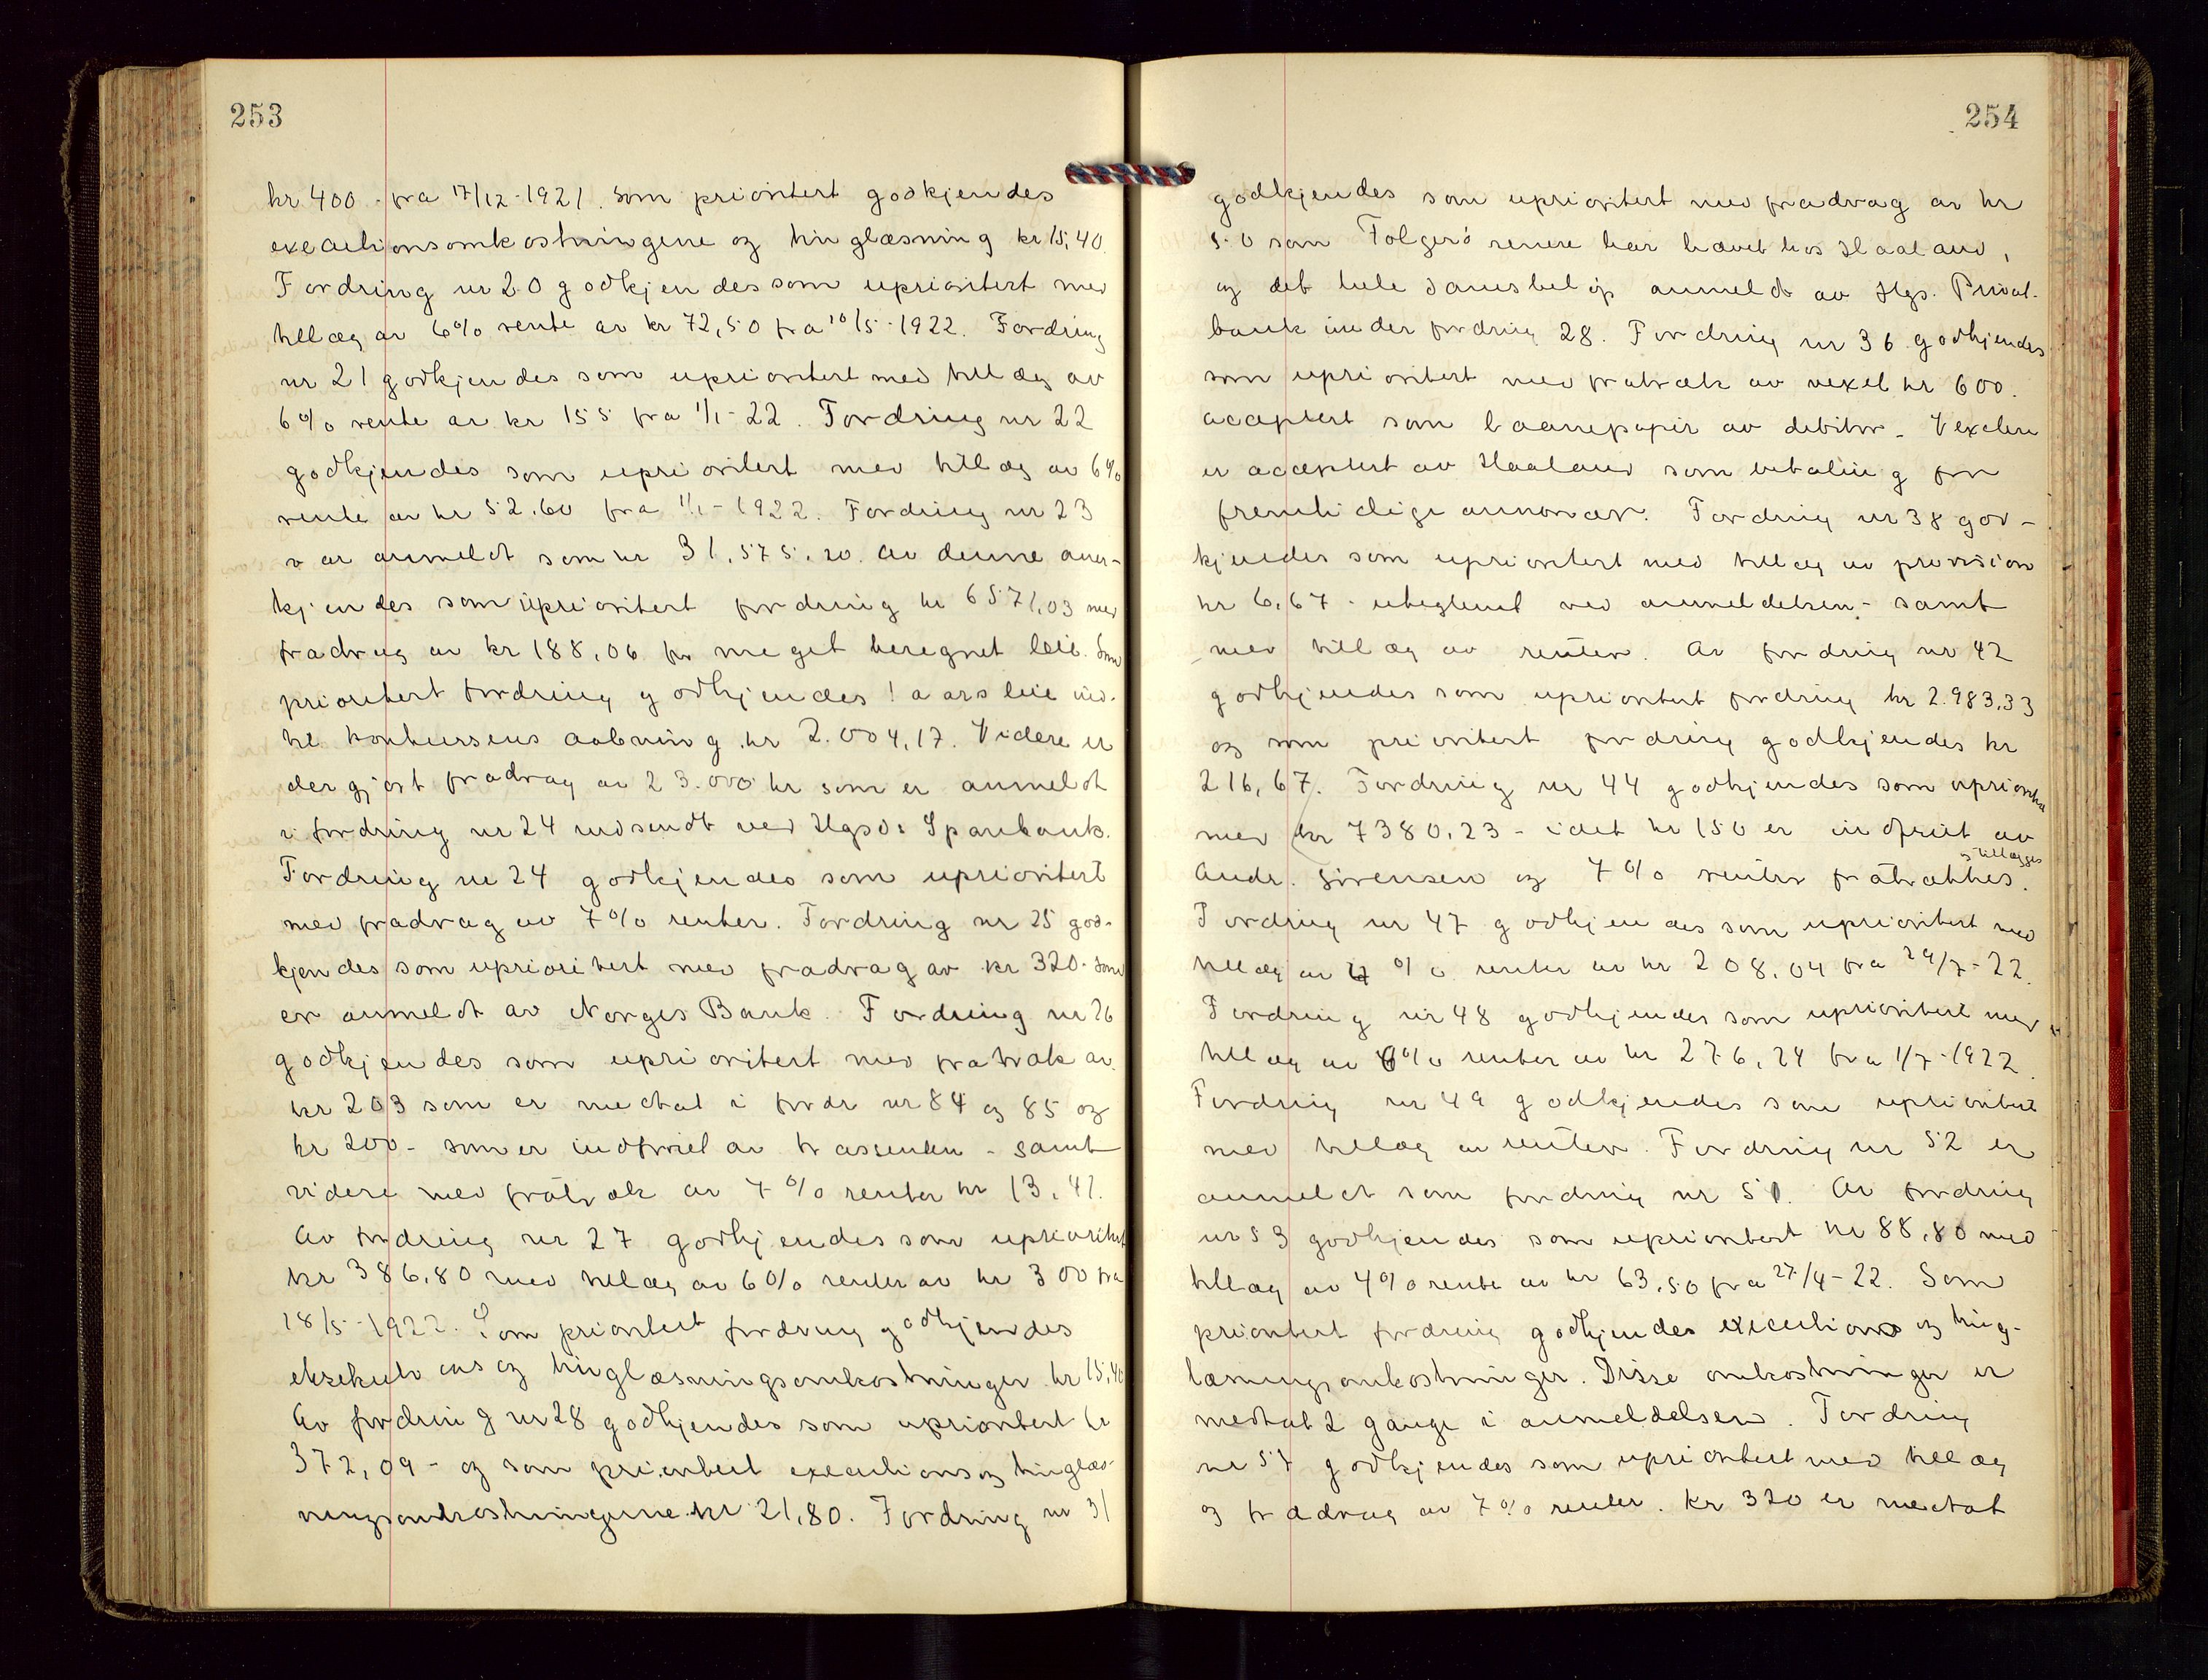 253
kr 400 - fra 17/12-1921. Som prioritert godkjendes
executionsomkostningene og tinglæsning kr 15,40
Fordring nr 20 godkjendes som uprioritert med
tillæg av 6% rente av kr 72,50 fra 10/5-1922. Fordring
nr 21 godkjendes som uprioritert med tillæg av
6% rente av kr 155 fra 1/1-22. Fordring nr 22
godkjendes som uprioritert med tillæg av 6%
rente av kr 52.60 fra 1/1-1922. Fordring nr 23
var anmeldt som kr 31.575.20. Av denne aner-
kjendes som uprioritert fordring kr 6571,03 med
fradrag av kr 188,06 for meget beregnet leie. Som
prioritert fordring godkjendes 1 aars leie ind-
til konkursens aabning kr 2.004,17. Videre er
der gjort fradrag av 23.000 kr som er anmeldt
i fordring nr 24 indsendt ved Hgsds Sparebank.
Fordring nr 24 godkjendes som uprioritert
med fradrag av 7% renter. Fordring nr 25 god-
kjendes som uprioritert med fradrag av kr 320- som
er anmeldt av Norges Bank. Fordring nr 26
godkjendes som uprioritert med fratræk av
kr 203 som er medtat i fordr nr 84 og 85 og
kr 200- som er indfriet av trassenten - samt
videre med fratræk av 7% renter kr 13,41.
Av fordring nr 27 godkjendes som uprioritert
kr 386.80 med tillæg av 6% renter av kr 300 fra
18/5-1922. Som prioritert fordring godkjendes
eksekutions og tinglæsningsomkostninger kr 15,40
Av fordring nr 28 godkjendes som uprioritert kr
372,09 - og som prioritert executions og tinglæs-
ningsomkostningerne kr 21,80. Fordring nr 31
254
godkjendes som uprioritert med fradrag av kr
50 som Følgerö senere har hævet hos Haaland,
og det hele laansbelöp anmeldt av Hgs. Privat-
bank under fordring 28. Fordring nr 36 godkjendes
som uprioritert med fratræk av vexel kr 600.
acceptert som laanepapir av debitor. Vexelen
er acceptert av Haaland som betaling for
fremtidige annoncer. Fordring nr 38 god-
kjendes som uprioritert med tillæg av provision
kr 6,67 - uteglemt ved anmeldelsen - samt
med tillæg av renter. Av fordring nr 42
godkjendes som uprioritert fordring kr 2.983,33
og som prioritert fordring godkjendes kr
216,67. Fordring nr 44 godkjendes som uprioritert
med kr 7380,23 - idet kr 150 er indfriet av
Andr. Sivensen og 7% renter fratrækkes. og tillægges
Fordring nr 47 godkjendes som uprioritert med
tillæg av 4% renter av kr 208,04 fra 29/7-22.
Fordring nr 48 godkjendes som uprioritert med
tillæg av 6% renter av kr 276,24 fra 1/7-1922.
Fordring nr 49 godkjendes som uprioritert
med tillæg av renter. Fordring nr 52 er
anmeldt som fordring nr 51. Av fordring
nr 53 godkjendes som uprioritert kr 88,80 med
tillæg av 4% rente av kr 63,50 fra 27/4-22. Som
prioritert fordring godkjendes executions og ting-
læsningsomkostninger. Disse omkostninger er
medtat 2 gange i anmeldelsen. Fordring
nr 57 godkjendes som uprioritert med tillæg
og fradrag av 7% renter. Kr 320 er medtat